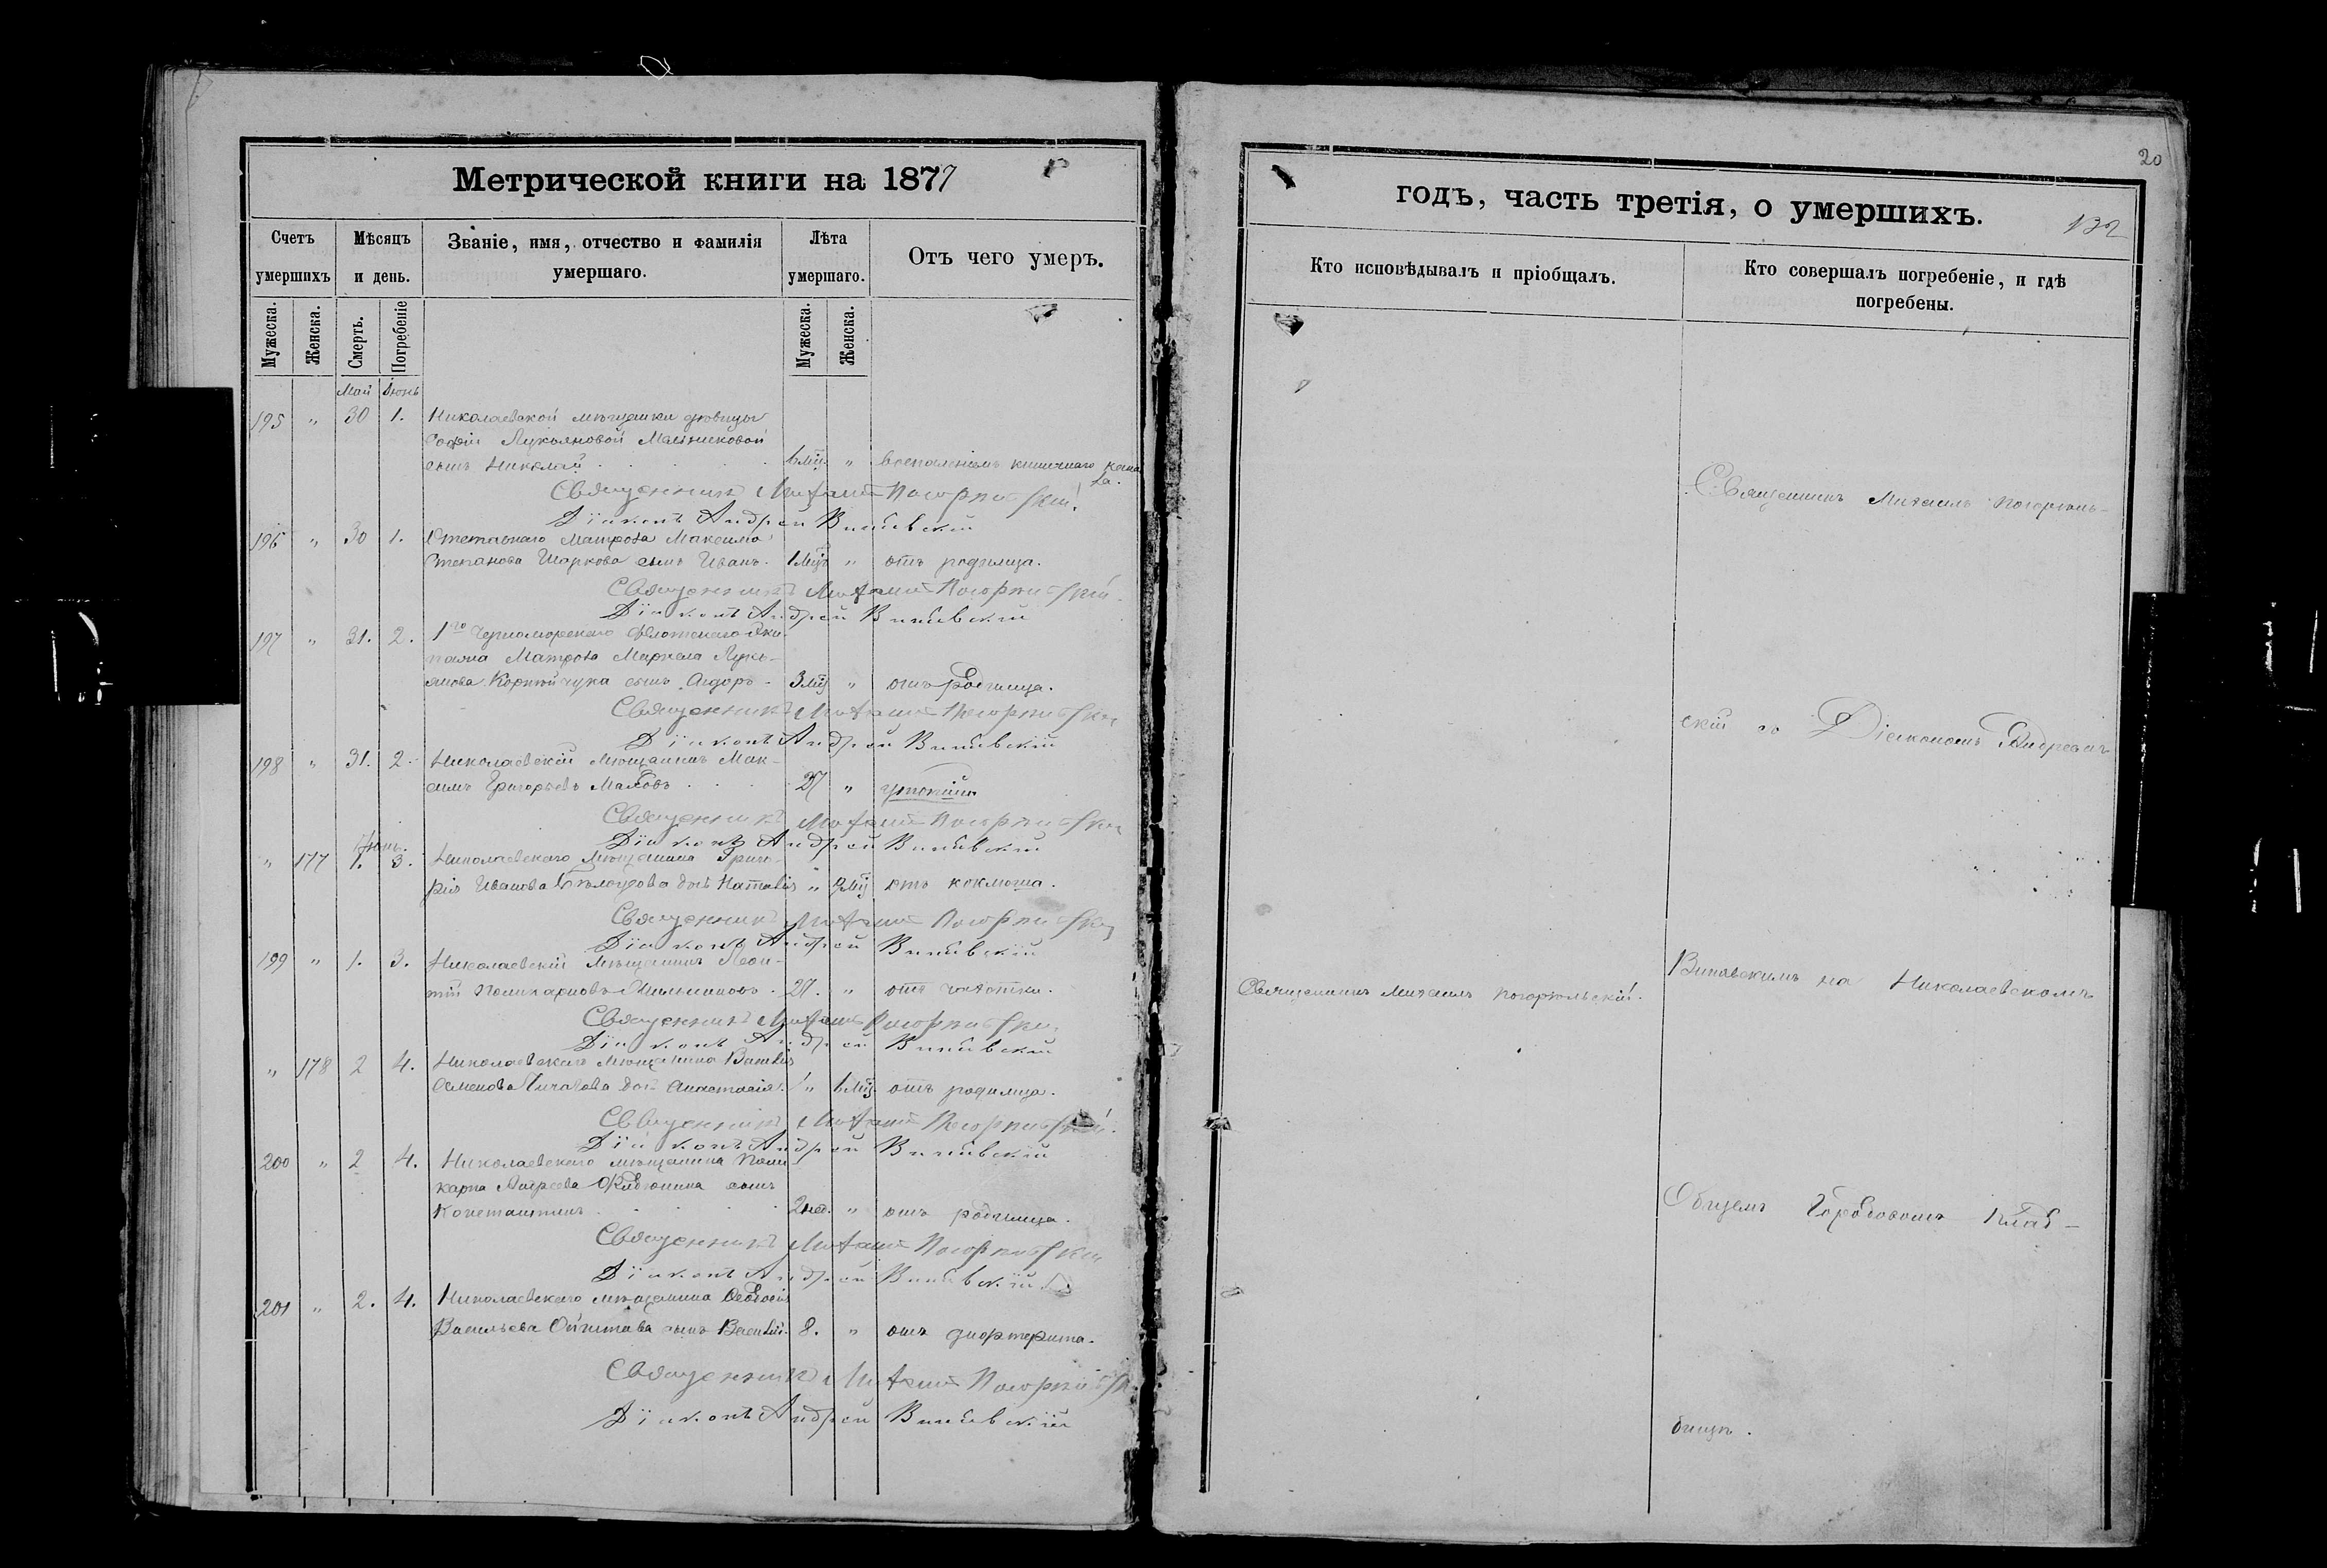 Метрической книги на 1877
Счетъ умершихъ
Мѣсяцъ и день.
Званіе, имя, отчество и фамилія умершаго.
Лѣта умершаго.
Отъ чего умеръ.
Мужеска.
Женска.
Смерть.
Погребеніе
Мужеска.
Женска.
Май Іюнь
195 " 30 1. Николаевской мѣщанки вдовицы
Софіи Лукьяновой Мельниковой
сынъ Николай 1 мѣс. " воспаленіемъ кишечнаго кана
ла.
Священникъ Михаилъ Погорѣльскій
Діаконъ Андрей
196 " 30 1. Отставнаго Матроса Максима
Степанова Шаркова сынъ Иванъ. 1 мѣс. " отъ родимца.
Священникъ Михаилъ Погорѣльскій
Діаконъ Андрей
197 " 31. 2. 1го Черноморскаго Флотскаго Эки
пажа Матроса Маркела Лукь-
янова Корнійчука сынъ Сидоръ 3 мѣс " отъ родимца.
Священникъ Михаилъ Погорѣльскій
Діаконъ Андрей
198 " 31. 2. Николаевскій Мѣщанинъ Мак-
симъ Григорьевъ 27 "
Священникъ Михаилъ Погорѣльскій
Діаконъ Андрей
Іюнь.
" 177 1. 3. Николаевскаго Мѣщанина Григо-
рія Иванова Бѣлоусова дочь Наталія " 2 мѣс отъ коклюша.
Священникъ Михаилъ Погорѣльскій
Діаконъ Андрей
199 " 1. 3. Николаевскій Мѣщанинъ Леон-
тій Поликарповъ 27. " отъ чахотки.
Священникъ Михаилъ Погорѣльскій
Діаконъ Андрей
" 178 2 4. Николаевскаго Мѣщанина Василія
Семенова Чичасова дочь Анастасія " 1 мѣс. отъ родимца.
Священникъ Михаилъ Погорѣльскій
Діаконъ Андрей
200 " 2 4. Николаевскаго мѣщанина Поли
карпа Андреева сынъ
Константинъ 2 нед. " отъ родимца.
Священникъ Михаилъ Погорѣльскій
Діаконъ Андрей
201 " 2. 4. Николаевскаго мѣщанина Ѳеодосія
Васильева сынъ Василій. 8. " отъ дифтерита.
Священникъ Михаилъ Погорѣльскій
Діаконъ Андрей
20
годъ, часть третія, о умершихъ.
132
Кто исповѣдывалъ и пріобщалъ.
Кто совершалъ погребеніе, и гдѣ погребены.
Священникъ Михаилъ Погорѣльскій.
Священникъ Михаилъ Погорѣль-
скій со Діакономъ Андреемъ
на Николаевскомъ
Общемъ Городовомъ Клад-
бищѣ.